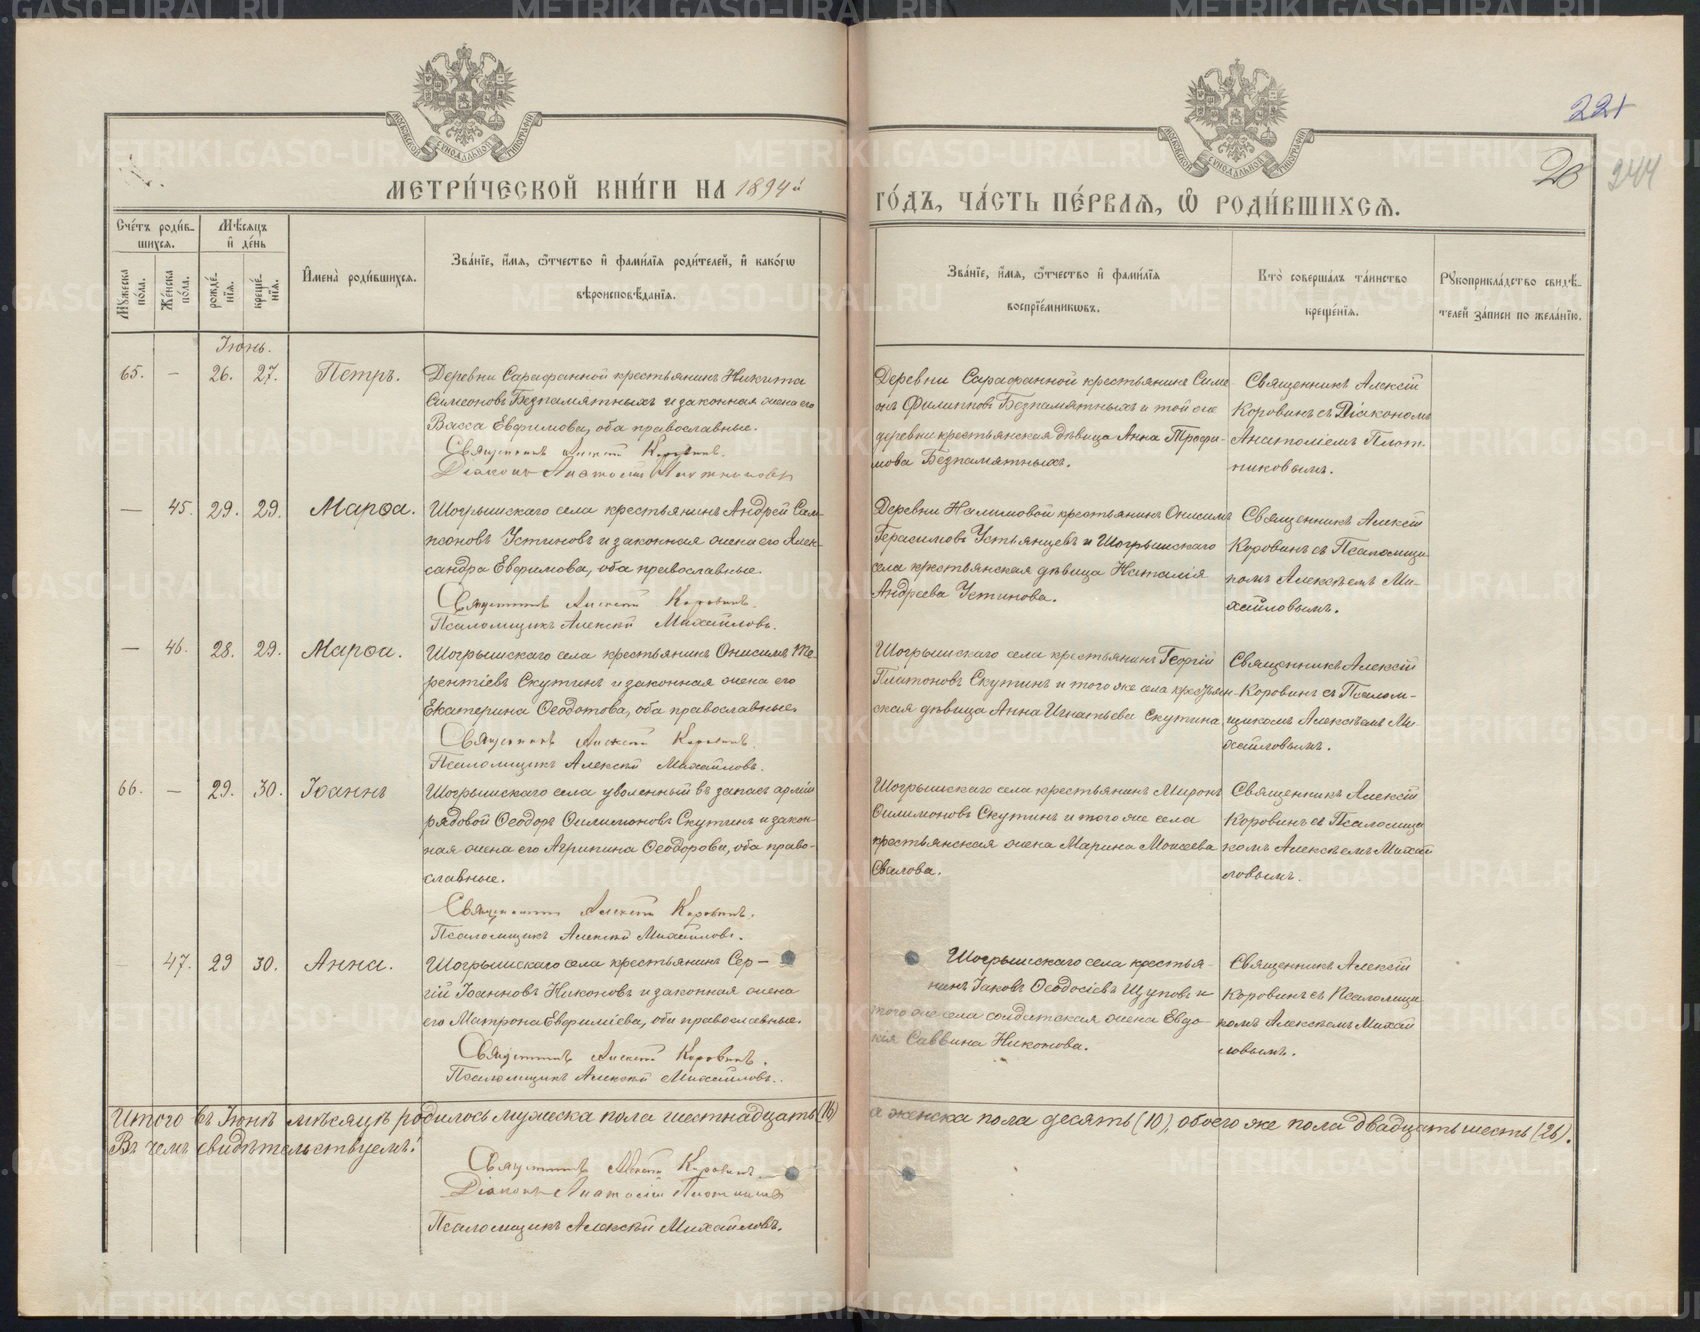 221
20 244
МЕТРИ́ЧЕСКОЙ КНИ́ГИ НА 1894й ГО́ДЪ, ЧА́СТЬ ПЕ́РВАЯ, Ѽ РОДИ́ВШИХСЯ.
Сче́тъ роди́в-
шихся.
Мѣ́сяцъ
и҆ де́нь
Му́жеска по́ла.
Же́нска по́ла.
рожде́нїя.
креще́нїя.
И҆мена̀ роди́вшихся.
Зва́нїе, и҆́мя, ѻ҆́тчество и҆ фами́лїя роди́телей, и҆ како́гѡ
вѣроисповѣ́данїя.
Зва́нїе, и҆́мя, ѻ҆́тчество и҆ фами́лїя
воспрїе́мникѡвъ.
Кто̀ соверша́лъ та́инство
креще́нїя.
Рꙋкоприкла́дство свидѣ́-
телей за́писи по жела́нїю.
Іюнь.
65. — 26. 27. Петръ.
Деревни Сарафанной крестьянинъ Никита
Симеоновъ Безпамятныхъ и законная жена его
Васса Евфимова, оба православные.
Священникъ Алексій Коровинъ.
Діаконъ Анатолій Плотниковъ
Деревни Сарафанной крестьянинъ Симе-
онъ Филипповъ Безпамятныхъ и той же
деревни крестьянская дѣвица Анна Трофи-
мова Безпамятныхъ.
Священникъ Алексій
Коровинъ съ Діакономъ
Анатоліемъ Плот-
никовымъ.
— 45. 29. 29. Марѳа.
Шогрышскаго села крестьянинъ Андрей Сам-
псоновъ Устиновъ и законная жена его Алек-
сандра Евфимова, оба православные.
Священникъ Алексій Коровинъ.
Псаломщикъ Алексѣй Михайловъ.
Деревни Налимовой крестьянинъ Онисимъ
Герасимовъ Устьянцевъ и Шогрышскаго
села крестьянская дѣвица Наталія
Андреева Устинова.
Священникъ Алексій
Коровинъ съ Псаломщи
комъ Алексѣемъ Ми-
хайловымъ.
— 46. 28. 29. Марѳа.
Шогрышскаго села крестьянинъ Онисимъ Те-
рентіевъ Скутинъ и законная жена его
Екатерина Ѳеодотова, оба православные.
Священникъ Алексій Коровинъ.
Псаломщикъ Алексѣй Михайловъ.
Шогрышскаго села крестьянинъ Георгій
Платоновъ Скутинъ и того же села крестьян-
ская дѣвица Анна Игнатьева Скутина,
Священникъ Алексій
Коровинъ съ Псалом-
щикомъ Алексѣемъ Ми-
хайловымъ.
66. — 29. 30. Іоаннъ
Шогрышскаго села уволенный въ запасъ арміи
рядовой Ѳеодоръ Филимоновъ Скутинъ и закон-
ная жена его Агрипина Ѳеодорова, оба право-
славные.
Священникъ Алексій Коровинъ.
Псаломщикъ Алексѣй Михайловъ.
Шогрышскаго села крестьянинъ Миронъ
Филимоновъ Скутинъ и того же села
крестьянская жена Марина Моисеева
Священникъ Алексій
Коровинъ съ Псаломщи
комъ Алексѣемъ Михай
ловымъ.
— 47. 29 30. Анна.
Шогрышскаго села крестьянинъ Сер-
гій Іоанновъ Никоновъ и законная жена
его Матрона Евфиміева, оба православные.
Священникъ Алексій Коровинъ.
Псаломщикъ Алексѣй Михайловъ.
Шогрышскаго села крестья-
нинъ Іаковъ Ѳеодосіевъ Щуповъ и
того же села солдатская жена Евдо-
кія Саввина Никонова.
Священникъ Алексій
Коровинъ съ Псаломщи
комъ Алексѣемъ Михай
ловымъ.
Итого въ Іюнѣ мѣсяцѣ родилось мужеска пола шестнадцать (16) а женска пола десять (10), обоего же пола двадцать шесть (26).
Въ чемъ свидѣтельствуемъ:
Священникъ Алексій Коровинъ
Діаконъ Анатолій Плотниковъ
Псаломщикъ Алексѣй Михайловъ.
METRIKI.GASO-URAL.RU